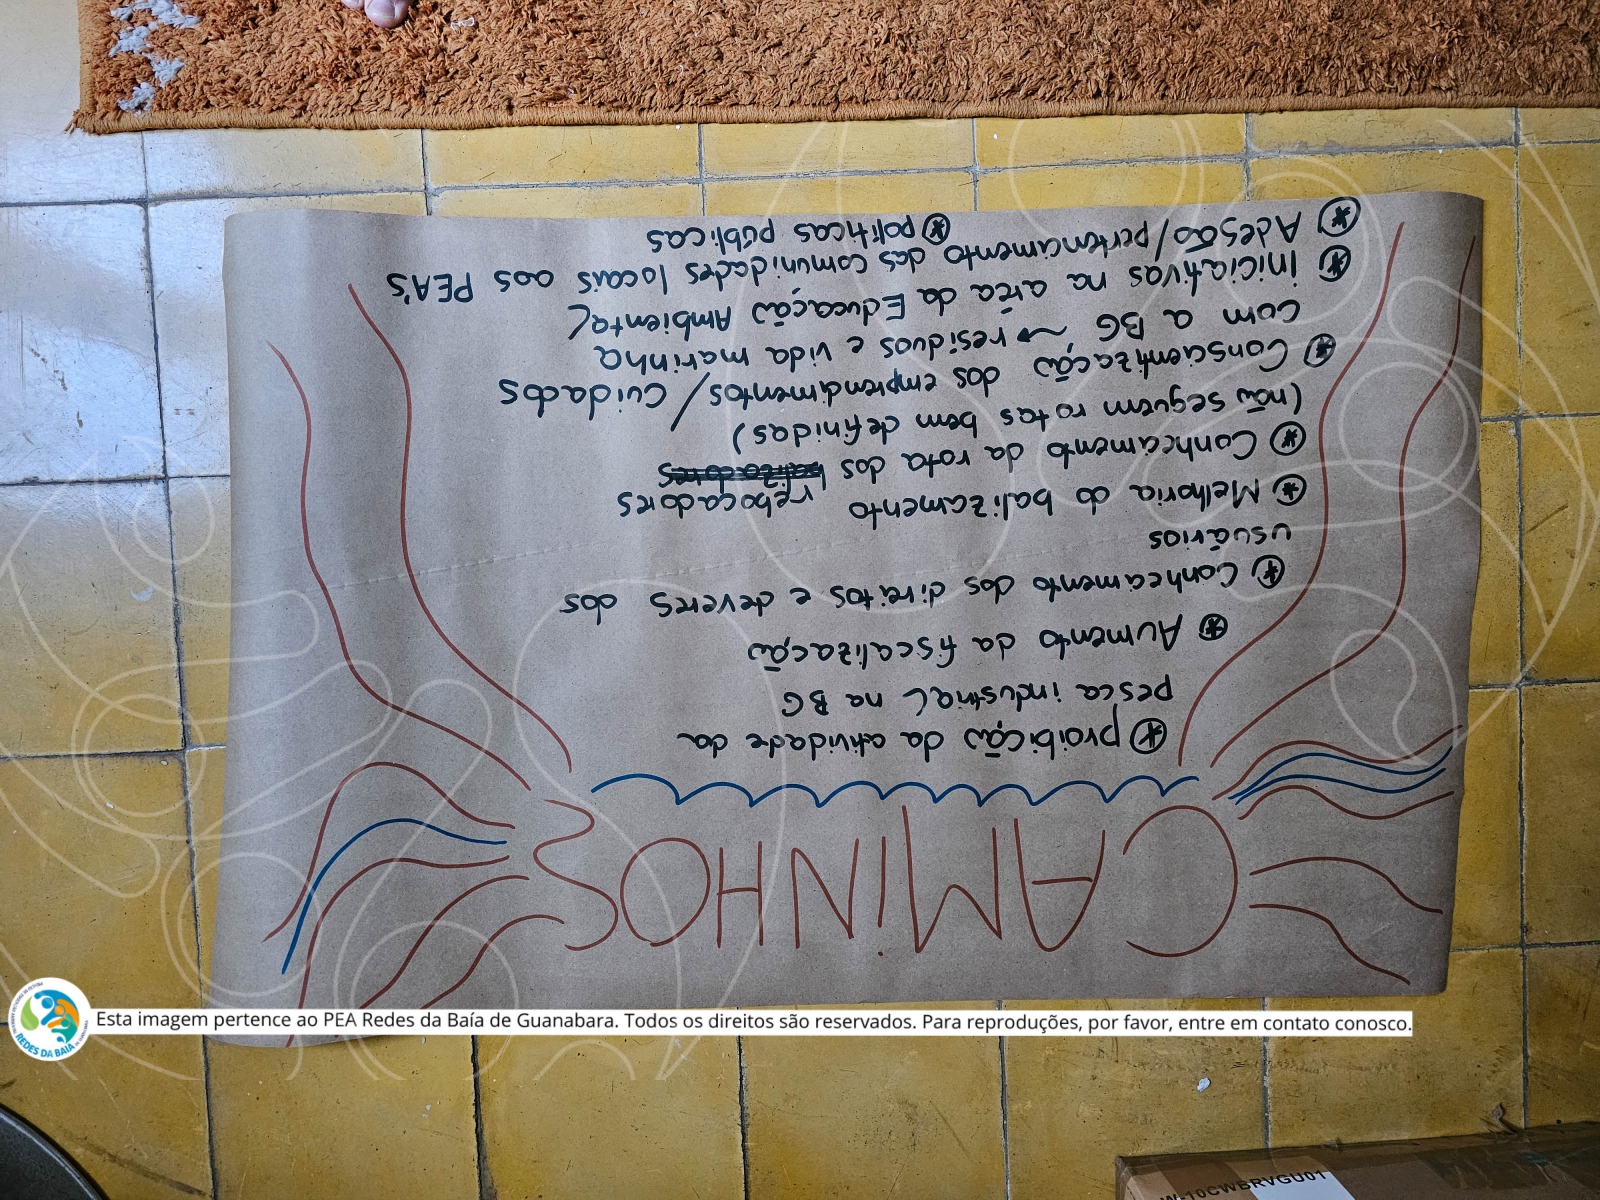 CAMINHOS
* proibição da atividade da
pesca industrial na BG
* Aumento da fiscalização
* Conhecimento dos direitos e deveres dos
usuários
* Melhoria do balizamento
* Conhecimento da rota dos balizadores rebocadores
(não seguem rotas bem definidas)
* Conscientização dos emprendimentos / Cuidados
com a BG → resíduos e vida marinha
* iniciativas na área da Educação Ambiental
* Adesão/pertencamento das comunidades locais aos PEA's
* políticas públicas
Esta imagem pertence ao PEA Redes da Baía de Guanabara. Todos os direitos são reservados. Para reproduções, por favor, entre em contato conosco.
REDES DA BAÍA
W-10CWBRVGU01